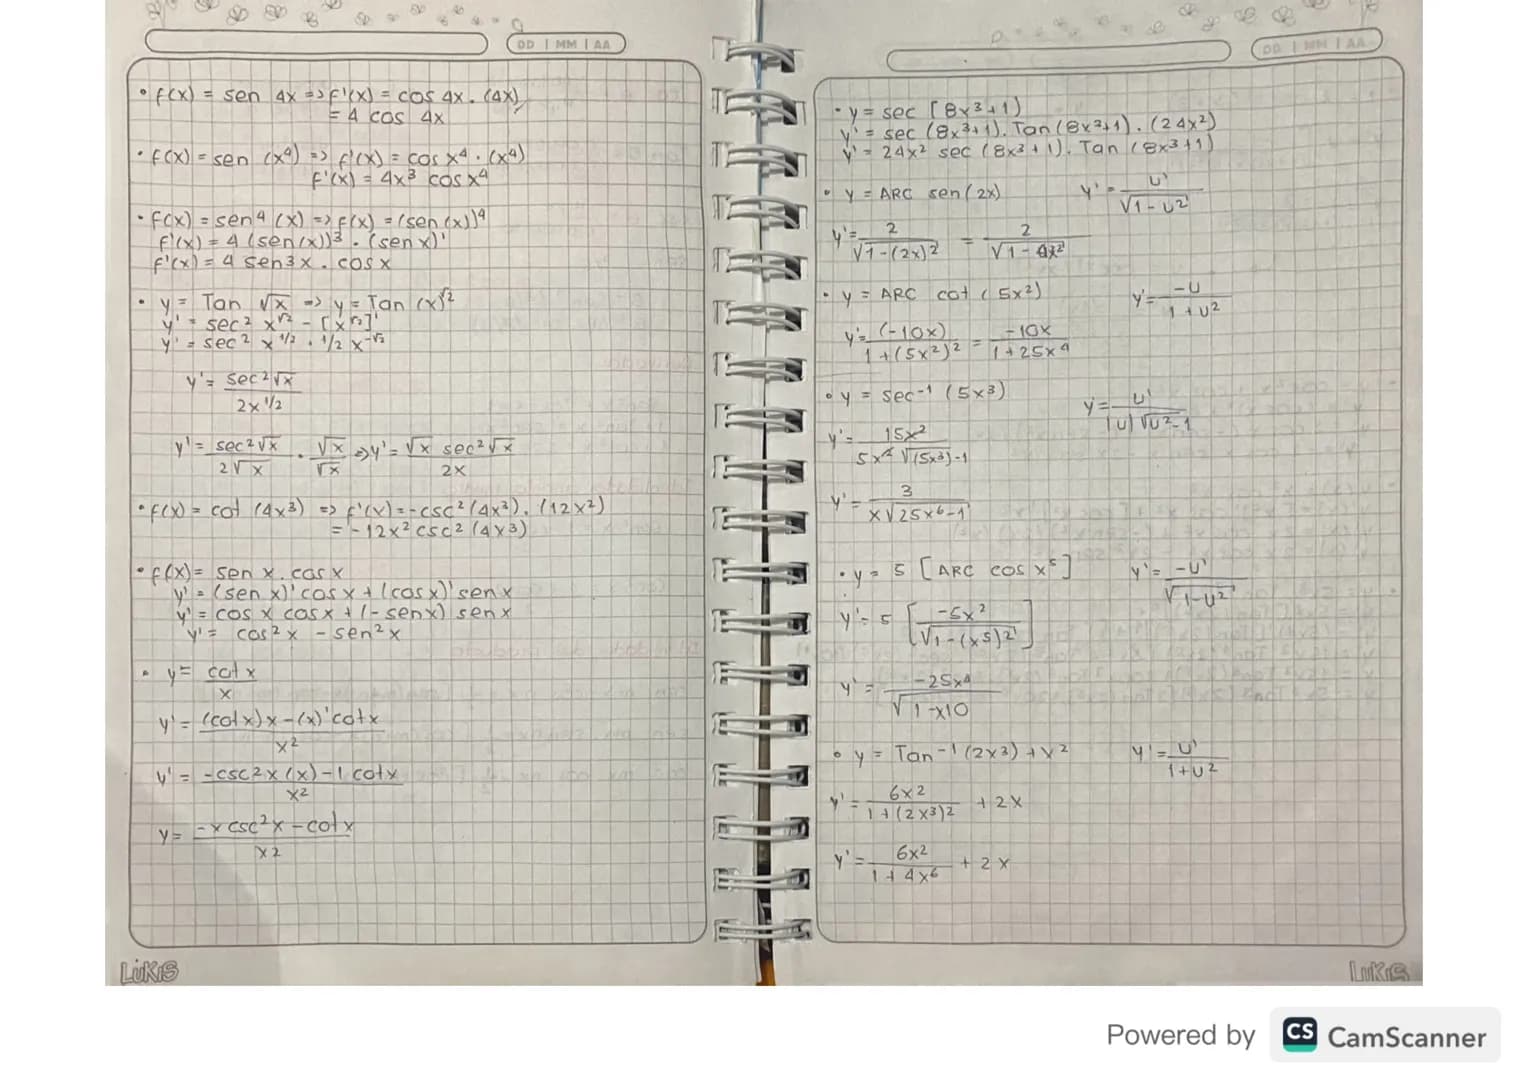 DD | MM | AA
• f(x) = sen 4x => f'(x) = cos 4x . (4x)
= 4 cos 4x
• f(x) = sen (x⁴) => f'(x) = cos x⁴ . (x⁴)
f'(x) = 4x³ cos x⁴
• f(x) = sen⁴ (x) => f(x) = (sen (x))⁴
f'(x) = 4 (sen(x))³ . (sen x)'
f'(x) = 4 sen3x . cos x
• y = Tan √x => y = Tan (x)^1/2
y' = sec² x^1/2 - [x^1/2]'
y' = sec² x^1/2 . 1/2 x^-1/2
y' = sec²√x / 2x^1/2
y' = sec²√x / 2√x . √x / √x => y' = √x sec²√x / 2x
• f(x) = cot (4x³) => f'(x) = -csc² (4x³) . (12x²)
= -12x² csc² (4x³)
• f(x) = sen x . cos x
y' = (sen x)' cos x + (cos x)' sen x
y' = cos x cos x + (-sen x) sen x
y' = cos² x - sen² x
• y = cot x / x
y' = (cot x) x - (x)' cot x / x²
y' = -csc²x (x) - 1 cotx / x²
y = -x csc²x - cot x / x2
LUKIS
DD | MM | AA
• y = sec [8x³+1)
y' = sec (8x³+1). Tan (8x³+1) . (24x²)
y' = 24x² sec (8x³+1). Tan (8x³+1)
• y = ARC sen (2x) y' = u' / √1-u²
y' = 2 / √1-(2x)² = 2 / √1-4x²
• y = ARC cot (5x²) y' = -u / 1+u²
y' = (-10x) / 1+(5x²)² = -10x / 1+25x⁴
• y = sec⁻¹ (5x³) y' = u' / |u| √u²-1
y' = 15x² / √(5x³)-1
y' = 3 / x√25x⁶-1
• y = 5 [ARC cos x⁵] y' = -u' / √1-u²
y' = 5 [-5x² / √1-(x⁵)²]
y' = -25x⁴ / √1-x10
• y = Tan⁻¹ (2x³) + x² y' = u' / 1+u²
y' = 6x² / 1+(2x³)² + 2x
y' = 6x² / 1+4x⁶ + 2x
LUKIS
Powered by CS CamScanner